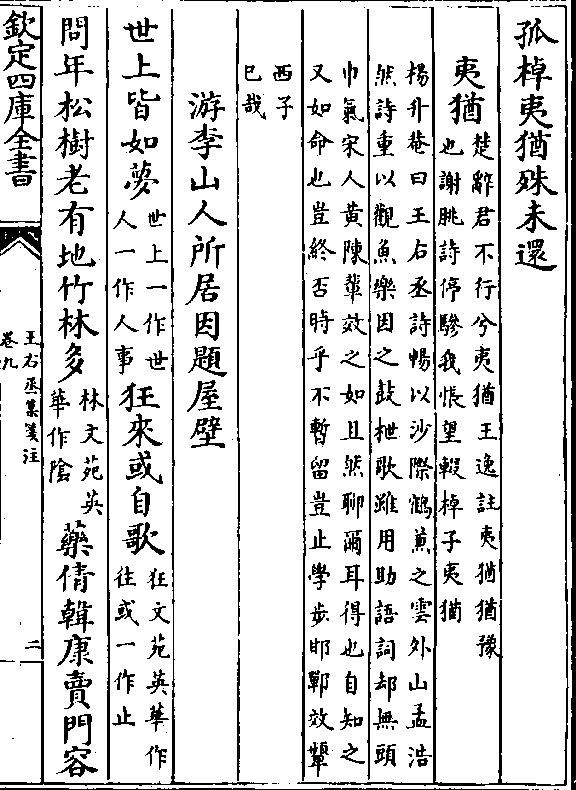 孤棹夷猶殊未還
夷猶
楚辭君不行兮夷猶王逸註夷猶猶豫
也謝朓詩停驂我悵望輟棹子夷猶
楊升菴曰王右丞詩暢以沙際鶴兼之雲外山孟浩
然詩重以觀魚樂因之鼓枻歌雖用助語詞却無頭
巾氣宋人黃陳輩效之如且然聊爾耳得也自知之
又如命也豈終否時乎不暫留豈止學步邯鄲效顰
西子
已哉
游李山人所居因題屋壁
世上皆如夢
世上一作世
人一作人事
狂來或自歌
狂文苑英華作
往或一作止
問年松樹老有地竹林多
林文苑英
華作隂
藥倩韓康賣門容
欽定四庫全書
王右丞集箋注
卷九
二